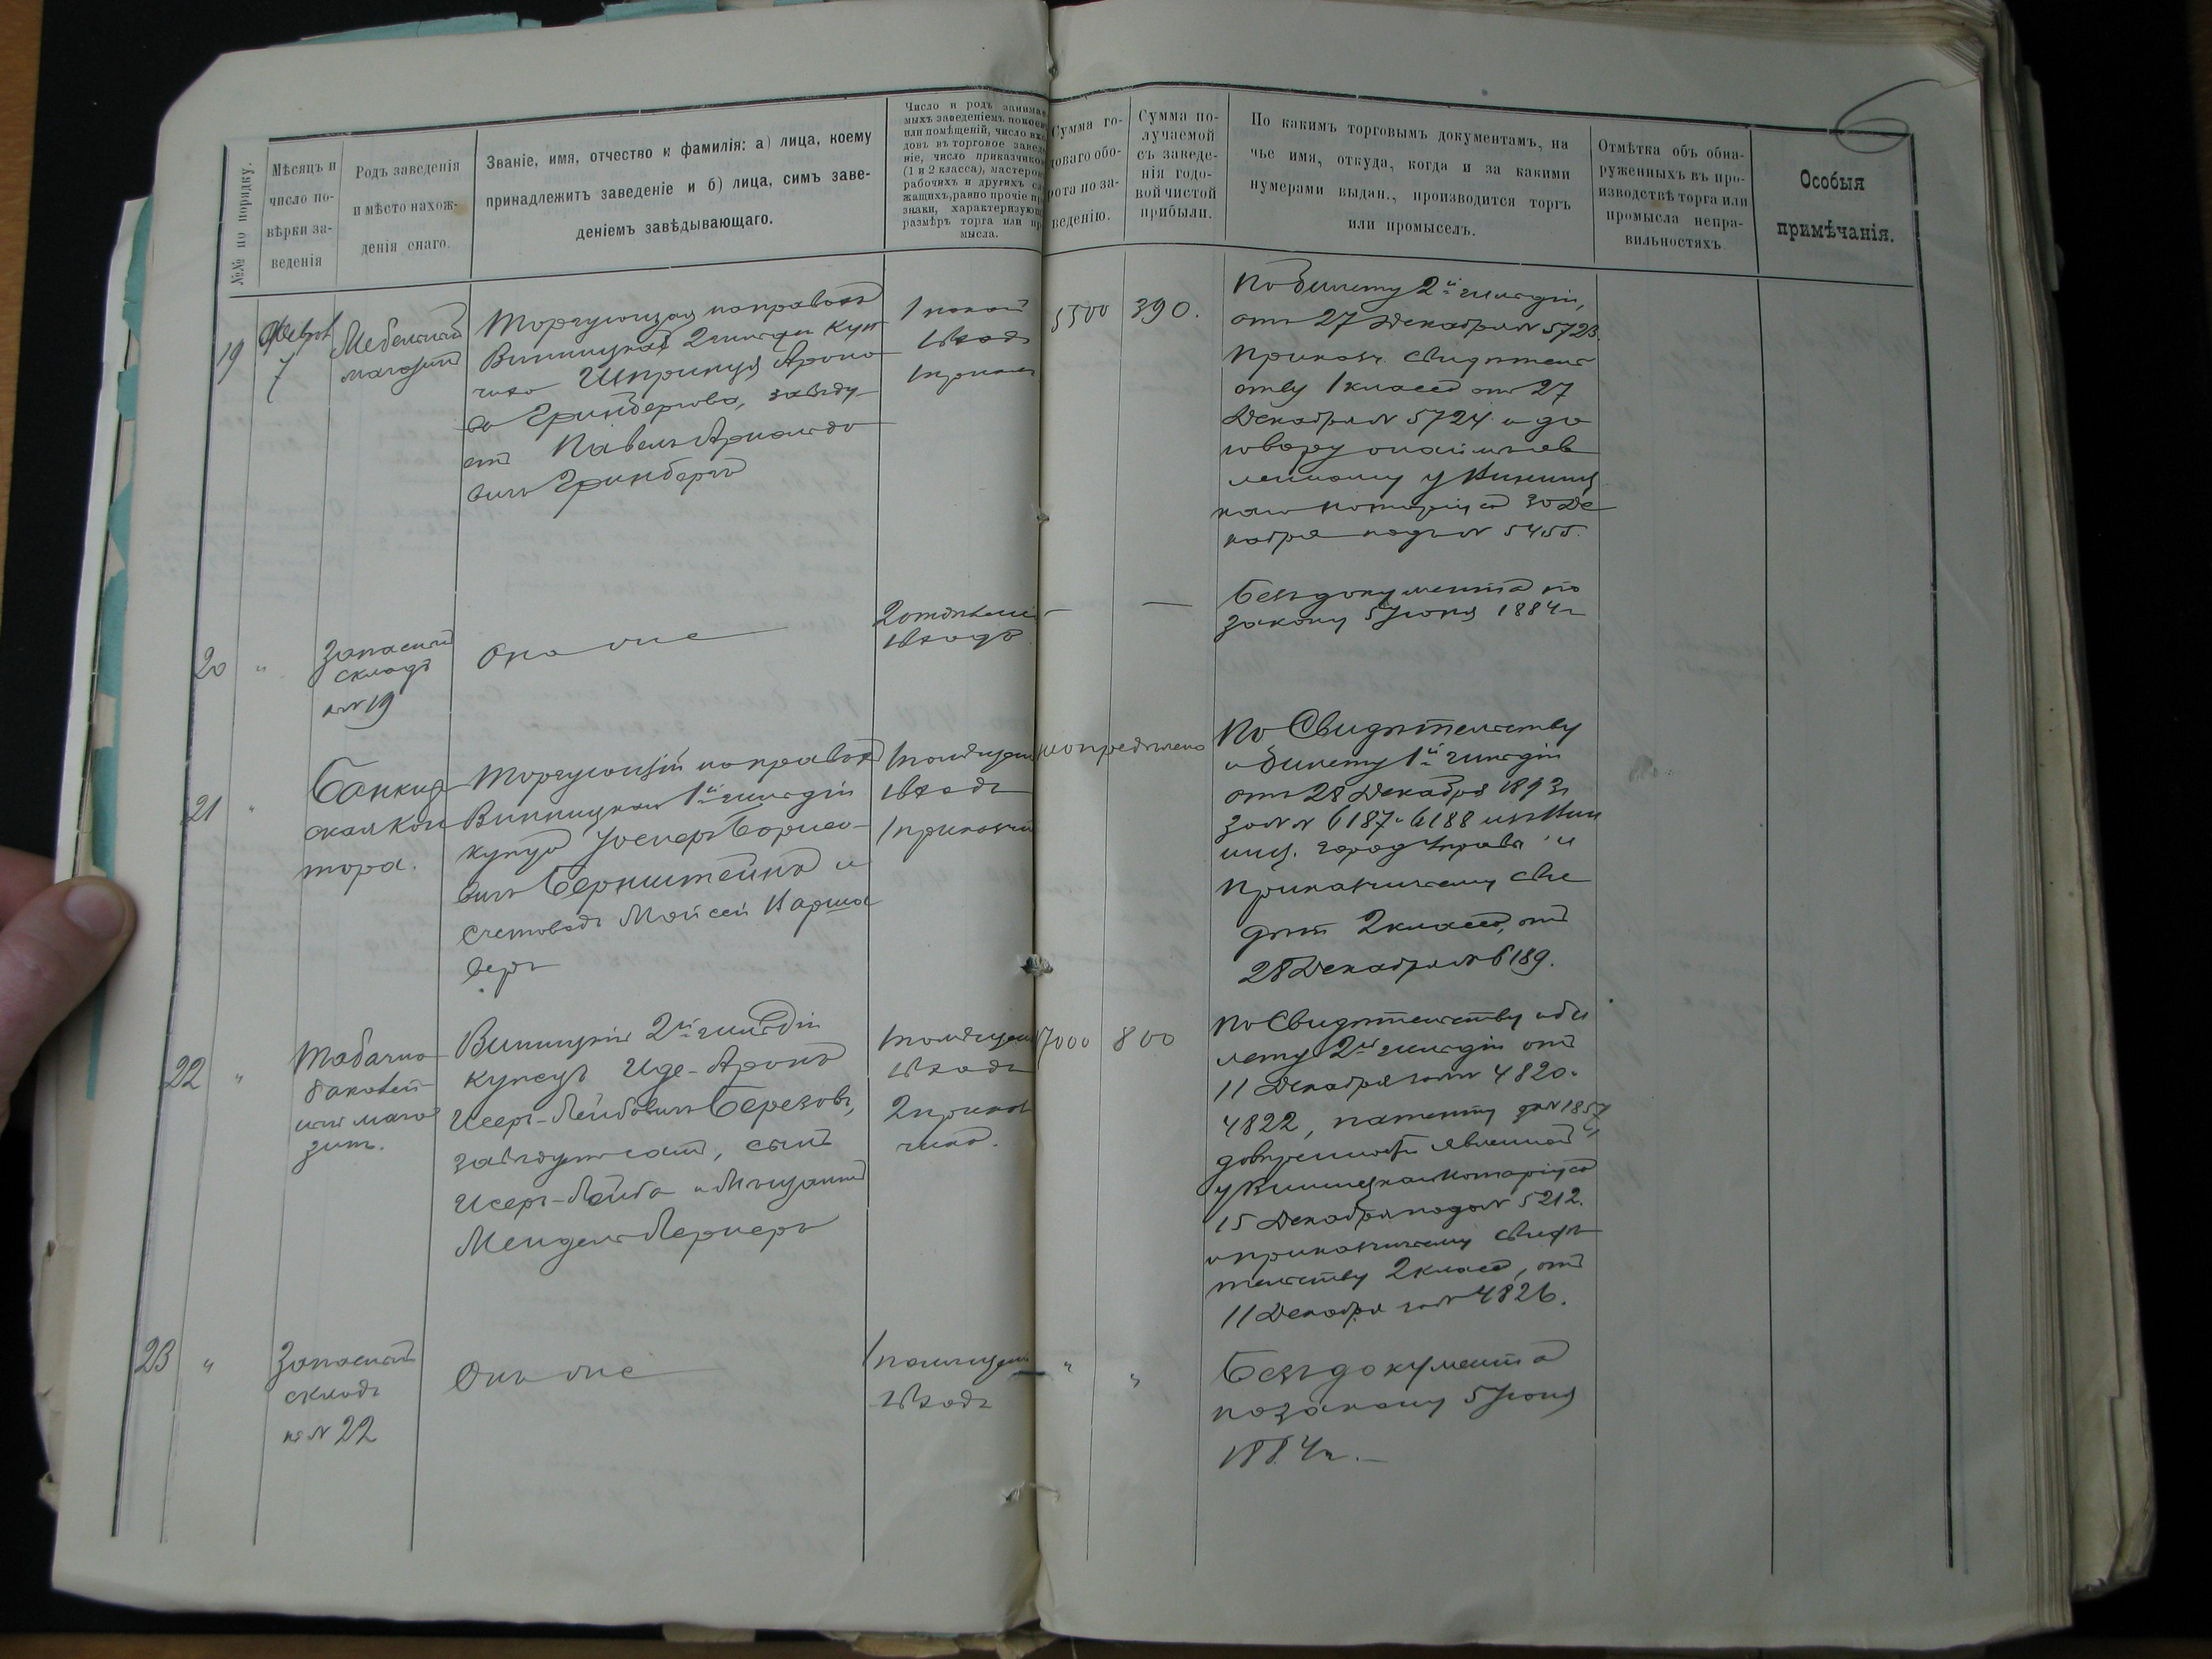 6
№№ по порядку.
Мѣсяцъ и
число по-
вѣрки за-
веденія
Родъ заведенія
и мѣсто нахож-
денія онаго.
Званіе, имя, отчество и фамилія: а) лица, коему
принадлежитъ заведеніе и б) лица, симъ заве-
деніемъ завѣдывающаго.
Число и родъ занимае-
мыхъ заведеніемъ покоевъ
или помѣщеній, число вхо-
довъ въ торговое заведе-
ніе, число приказчиковъ
(1 и 2 класса), мастеровъ
рабочихъ и другихъ слу-
жащихъ, равно прочіе при-
знаки, характеризующ
размѣръ торга или про-
мысла.
Сумма го-
товаго обо-
рота по за-
веденію.
Сумма по-
лучаемой
съ заведе-
нія годо-
вой чистой
прибыли.
По какимъ торговымъ документамъ, на
чье имя, откуда, когда и за какими
нумерами выдан., производится торгъ
или промыселъ.
Отмѣтка объ обна-
руженныхъ въ про-
изводствѣ торга или
промысла непра-
вильностяхъ
Особыя
примѣчанія.
19
Февраль
7
Мебельный
магазинъ
Торгующая на правахъ
Винницкаго 2 гильдіи Куп
чиха Шпринця Ароно
ва Гринбергова, завѣду
етъ Павелъ Арнольдо
вичъ Гринбергъ
1 покой
1 входъ
1 приказ
5500
390.
По билету 2й гильдіи,
отъ 27 Декабря № 5723.
Приказч. свидѣтельс
тву 1 класса отъ 27
Декабря № 5724 и до
говору о найм явл
ленному у Винниц
каго Нотаріуса 30 Де
кабря подъ № 5455.
20
"
Запасный
складъ
къ № 19
Она же
2 отдѣлені
1 входъ
—
—
Безъ документа по
закону 5 Іюня 1884 г
21
"
Банкир
ская Кон
тора.
Торгующій на правахъ
Винницкаго 1й гильдіи
купца Іосифъ Борисо-
вичъ Бернштейнъ и
Счетоводъ Мойсей Карша
веръ
1 помѣщен
1 входъ
1 приказчи
неопредѣлено
По Свидѣтельству
и билету 1й гильдіи
отъ 28 Декабря 1893 г
за № № 6187 и 6188 изъ Вин
ниц. Город Управы и
Приказчичьему сви
дѣт 2 класса, отъ
28 Декабря № 6189.
22
"
Табачно
бакалей
ный мага
зинъ.
Винницкій 2й гильдіи
купецъ Иде-Аронъ
Исеръ-Лейбовичъ Березовъ,
завѣдуютъ, сынъ
Исеръ-Лейба и Мѣщанинъ
Мендель Лернеръ
1 помѣщен
1 входъ
2 приказ
чика.
17000
800
По Свидѣтельству и би
лету 2й гильдіи отъ
11 Декабря за № 4820 и
4822, патенту за № 1857
довѣренности явленной
у Винницкаго Нотаріуса
15 Декабря подъ № 5212.
и приказчичьему свидѣ
тельству 2 класса, отъ
11 Декабря за № 4826.
23
"
Запасный
складъ
къ № 22
Онъ же
1 помѣщен
1 входъ
"
"
Безъ документа
по закону 5 Іюня
1884 г.